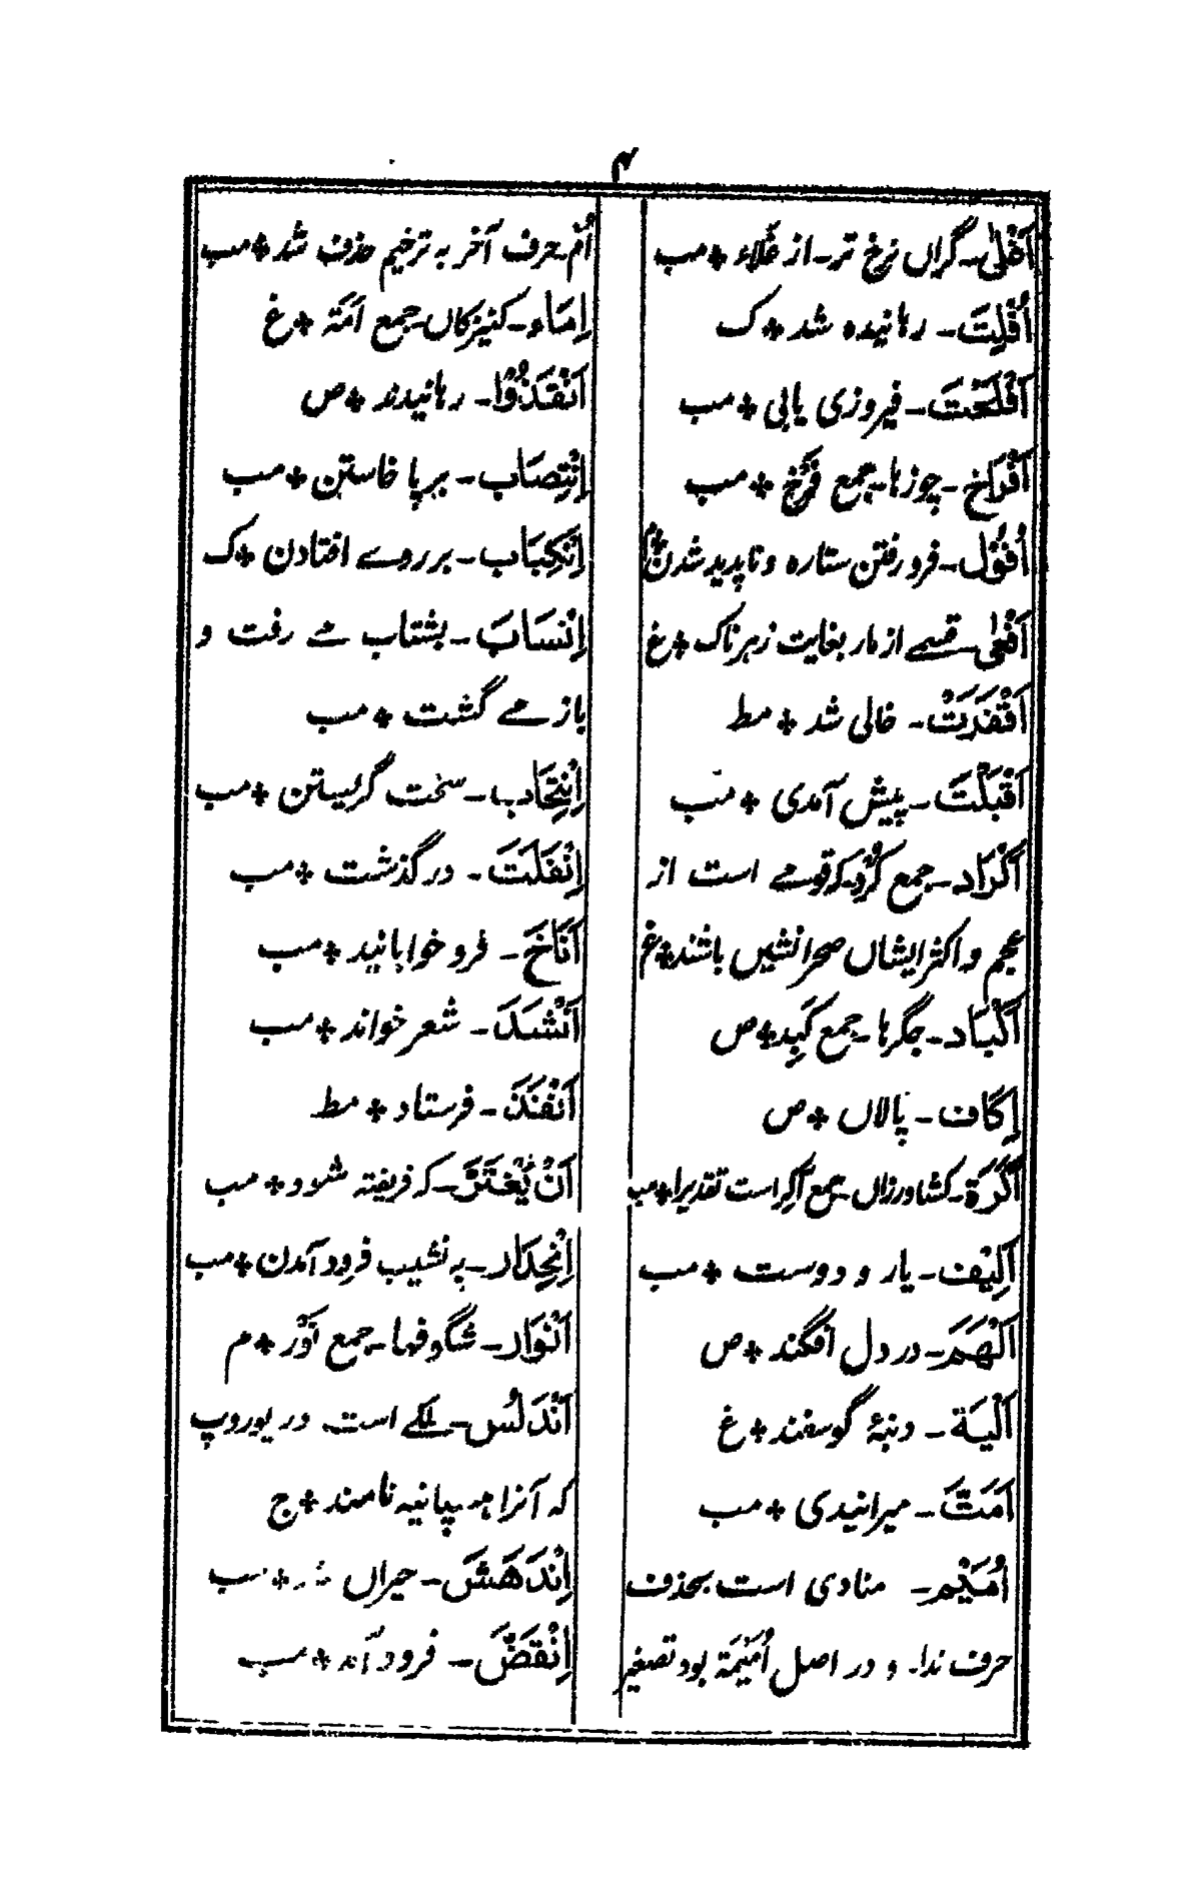 ۴
اَغْلٰی۔ گراں نرخ تر۔ از غَلاء ٭ مب
اُفْلِتَ۔ رہانیدہ شد ٭ ک
اَفْلَحْتَ۔ فیروزی یابی ٭ مب
اَفْرَاخ۔ چوزہا۔ جمع فَرْخ ٭ مب
اُفُوْل۔ فرو رفتن ستارہ و ناپدید شدن ٭
اَفْعٰی۔ قسمے از مار بغایت زہرناک ٭ غ
اَقْفَرَتْ۔ خالی شد ٭ مط
اَقْبَلْتَ۔ پیش آمدی ٭ مب
اَکْرَاد۔ جمع کُرْد کہ قومے است از
عجم و اکثر ایشاں صحرا نشیں باشند ٭ غ
اَکْبَاد۔ جگرہا۔ جمع کَبِد ٭ ص
اِکَاف۔ پالاں ٭ ص
اَکَرَة۔ کشاورزاں۔ جمع آکِر است تقدیرا ٭ مب
اَلِیْف۔ یار و دوست ٭ مب
اَلْھَمَ۔ در دل افگند ٭ ص
اَلْیَة۔ دنبۂ گوسفند ٭ غ
اَمَتَّ۔ میرانیدی ٭ مب
اُمَیْم۔ منادی است بحذف
حرف ندا۔ و در اصل اُمَیْمَة بود تصغیر
اُمّ۔ حرف آخر بہ ترخیم حذف شد ٭ مب
اِمَاء۔ کنیزکاں۔ جمع اَمَة ٭ غ
اَنْقَذُوْا۔ رہانیدند ٭ ص
اِنْتِصَاب۔ برپا خاستن ٭ مب
اِنْکِبَاب۔ بر روے افتادن ٭ ک
اِنْسَابَ۔ بشتاب مے رفت و
باز مے گشت ٭ مب
اِنْتِحَاب۔ سخت گریستن ٭ مب
اِنْفَلَتَ۔ در گذشت ٭ مب
اَنَاخَ۔ فرو خوابانید ٭ مب
اَنْشَدَ۔ شعر خواند ٭ مب
اَنْفَذَ۔ فرستاد ٭ مط
اَنْ یَّغْتَرَّ۔ کہ فریفتہ شود ٭ مب
اِنْحِدَار۔ بہ نشیب فرود آمدن ٭ مب
اَنْوَار۔ شگوفہا۔ جمع نَوْر ٭ م
اَنْدَلُس۔ ملکے است در یوروپ
کہ آنرا ہسپانیہ نامند ٭ ج
اِنْدَھَشَ۔ حیراں شد ٭ مب
اِنْقَضَّ۔ فرود آمد ٭ مب